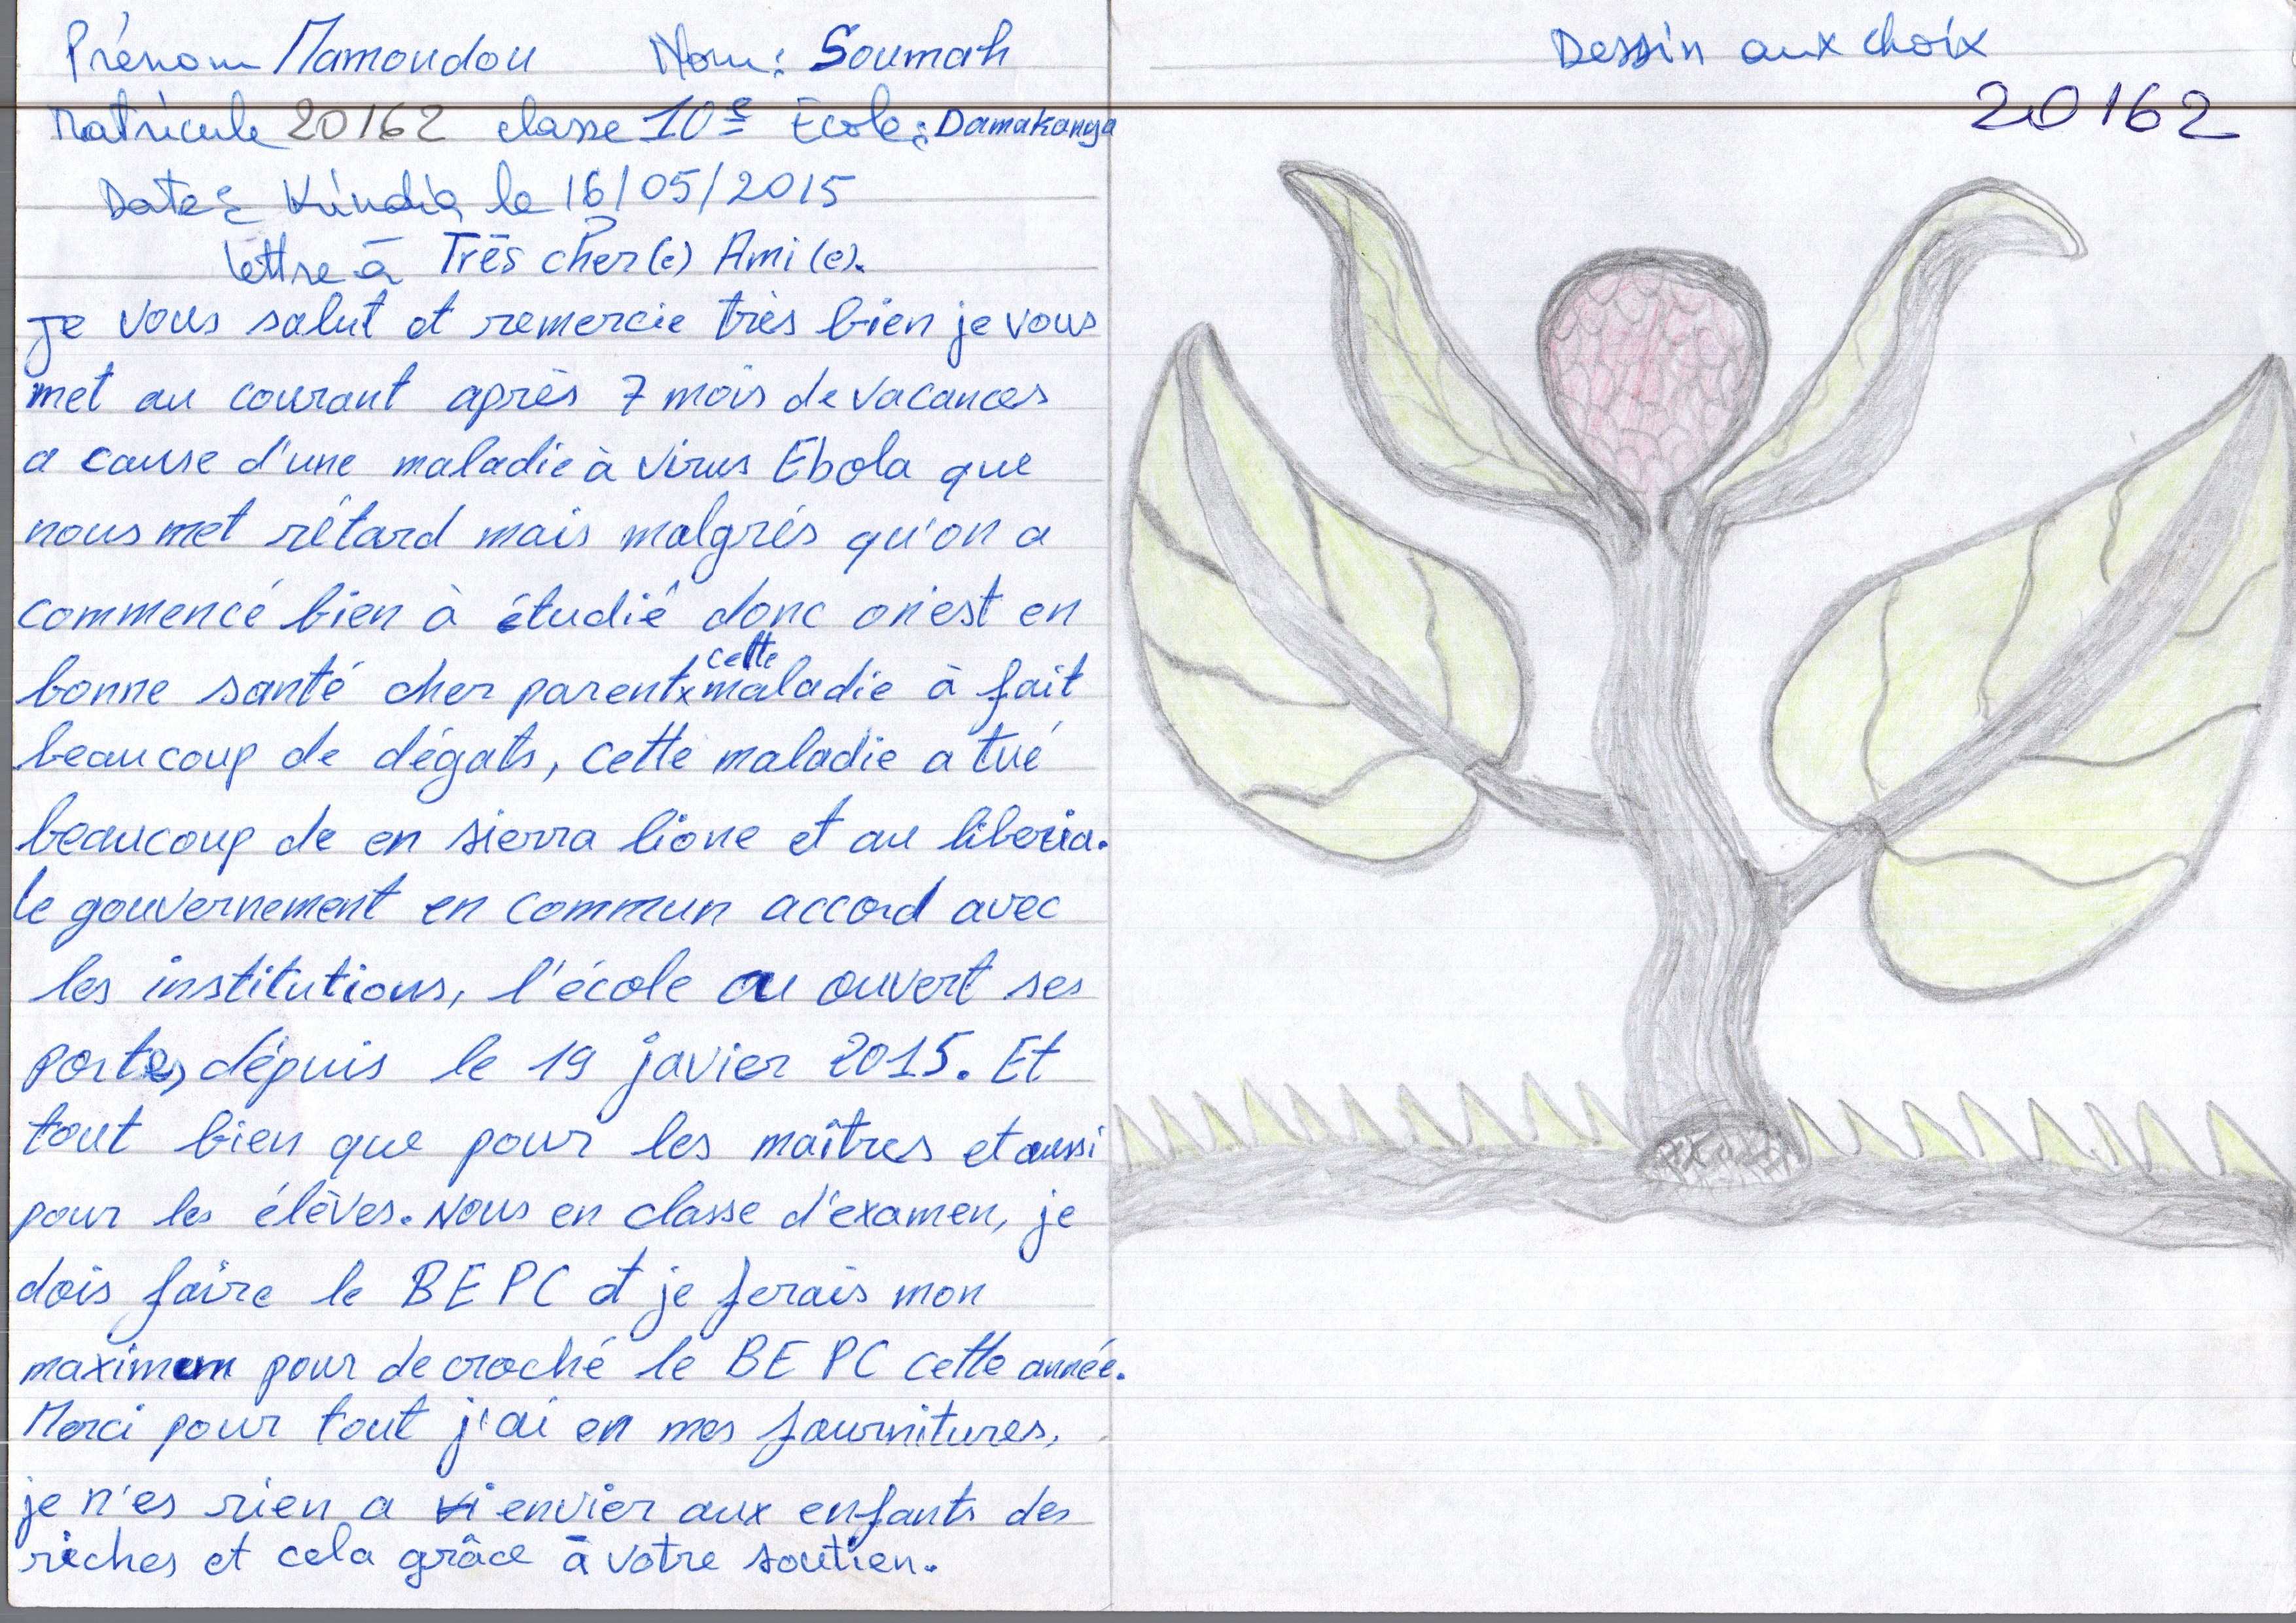 Prénom Mamoudou Nom: Soumah
Matricule 20162 classe 10e Ecole: Damakanya
Date: Kindia le 16/05/2015
lettre à Très cher(e) Ami(e).
je vous salut et remercie très bien je vous
met au courant après 7 mois de vacances
a cause d'une maladie à virus Ebola que
nous met rétard mais malgrés qu'on a
commencé bien à étudié donc on'est en
bonne santé cher parent cette maladie à fait
beaucoup de dégats, cette maladie a tué
beaucoup de en sierra lione et au liberia.
le gouvernement en commun accord avec
les institutions, l'école au ouvert ses
portes dépuis le 19 javier 2015. Et
tout bien que pour les maîtres et aussi
pour les élèves. Nous en classe d'examen, je
dois faire le BEPC et je ferais mon
maximum pour decroché le BEPC cette année.
Merci pour tout j'ai en mes fournitures,
je n'es rien a envier aux enfants des
riches et cela grâce à votre soutien.
Dessin aux choix
20162